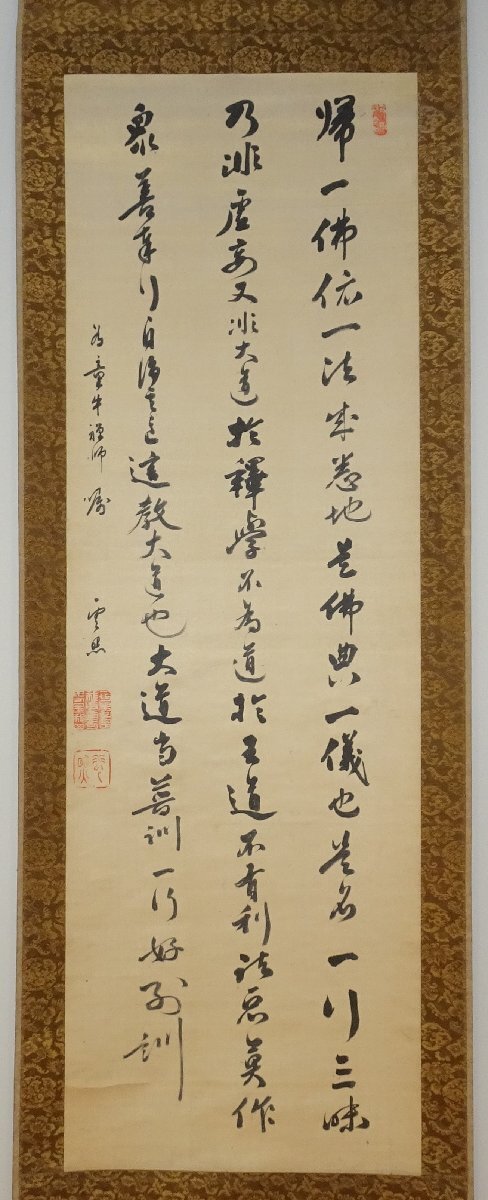 帰一佛依一法成悉地是佛典一儀也是名一行三昧
乃非虚妄又非大道於釋學不為道於王道不有利諸惡莫作
衆善奉行自浄其意這教大道也大道当普訓一行好訓
為童牛禪師嘱
雲照